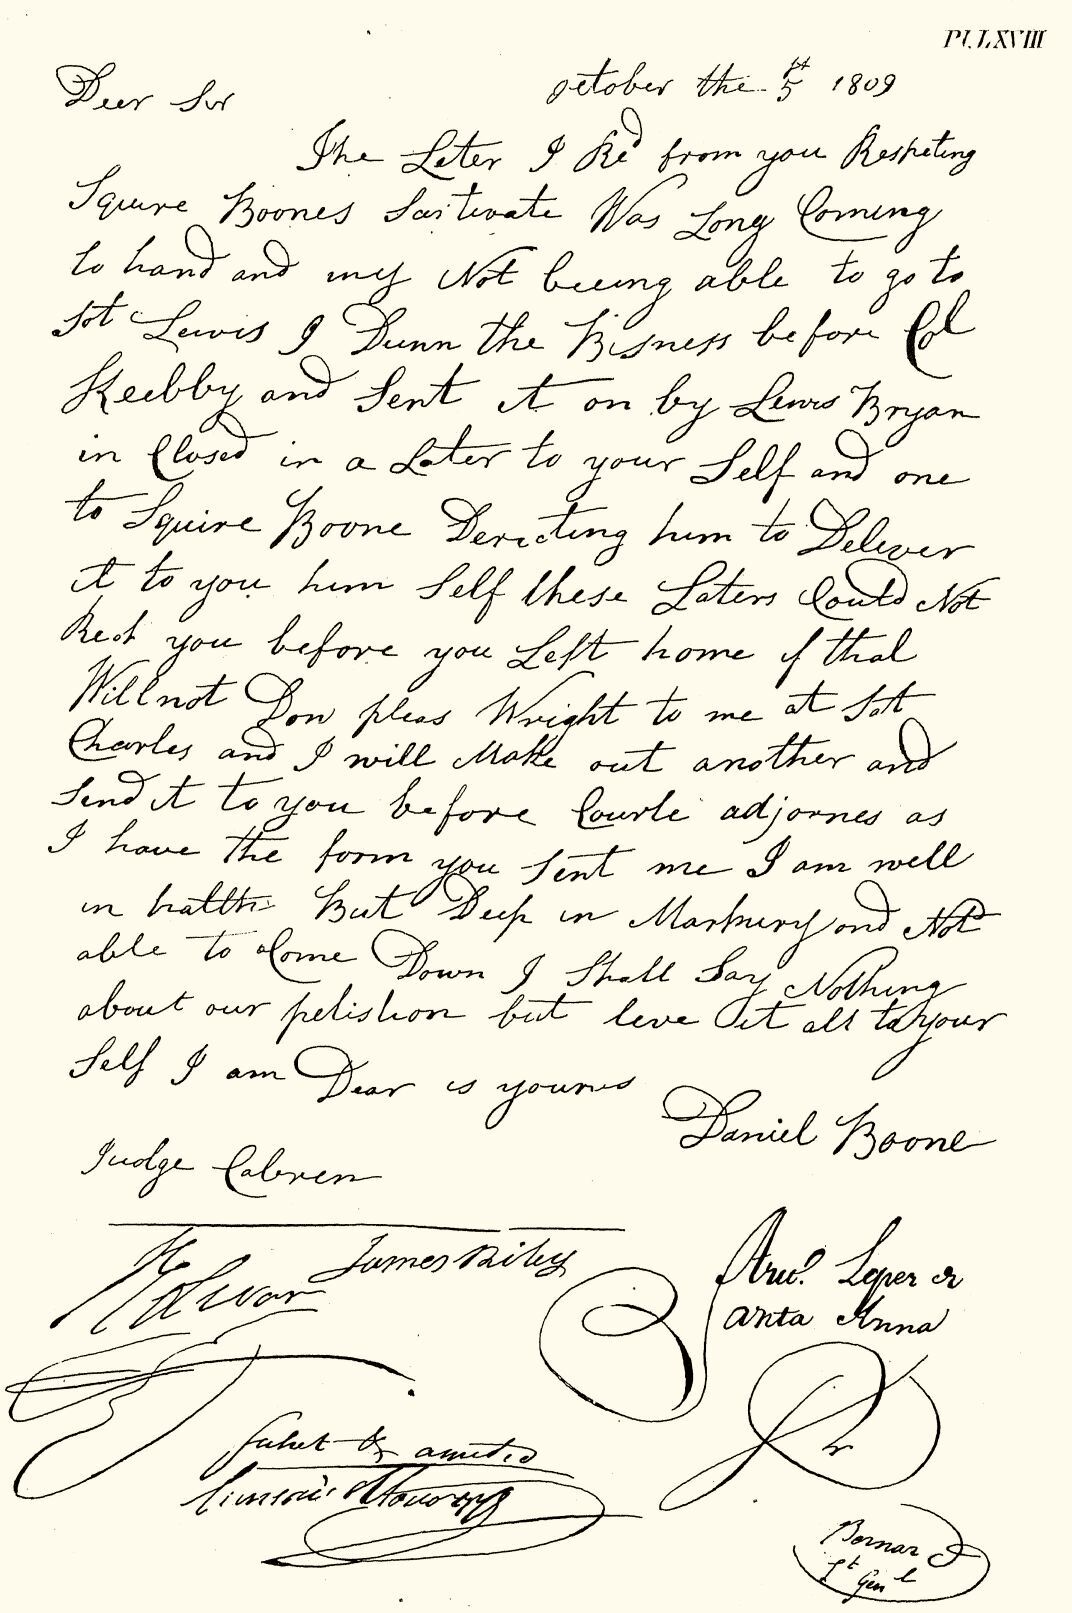 Pl. LXVIII
october the 5th 1809
Deer Sir
The Later I Red from you Respeting
Squire Boones Sartivate Was Long Coming
to hand and my Not beeing able to go to
Sot Lewis I Dunn the Bisness before Col
Keebby and Sent it on by Lewis Bryan
in Closed in a Later to your Self and one
to Squire Boone Derecting him to Delever
it to you him Self these Laters Could Not
Rech you before you Left home if that
Will not Don pleas Wright to me at Sot
Charles and I will Make out another and
Send it to you before Courte adjornes as
I have the form you sent me I am well
in halth But Deep in Markury and Not
able to Come Down I Shall Say Nothing
about our petistion but leve it all to your
Self I am Dear is youres
Daniel Boone
Judge Cabren
James Riley
Bolivar
Anto Lopez de
Santa Anna
Salut & amitié
Bernard
Lt Genl